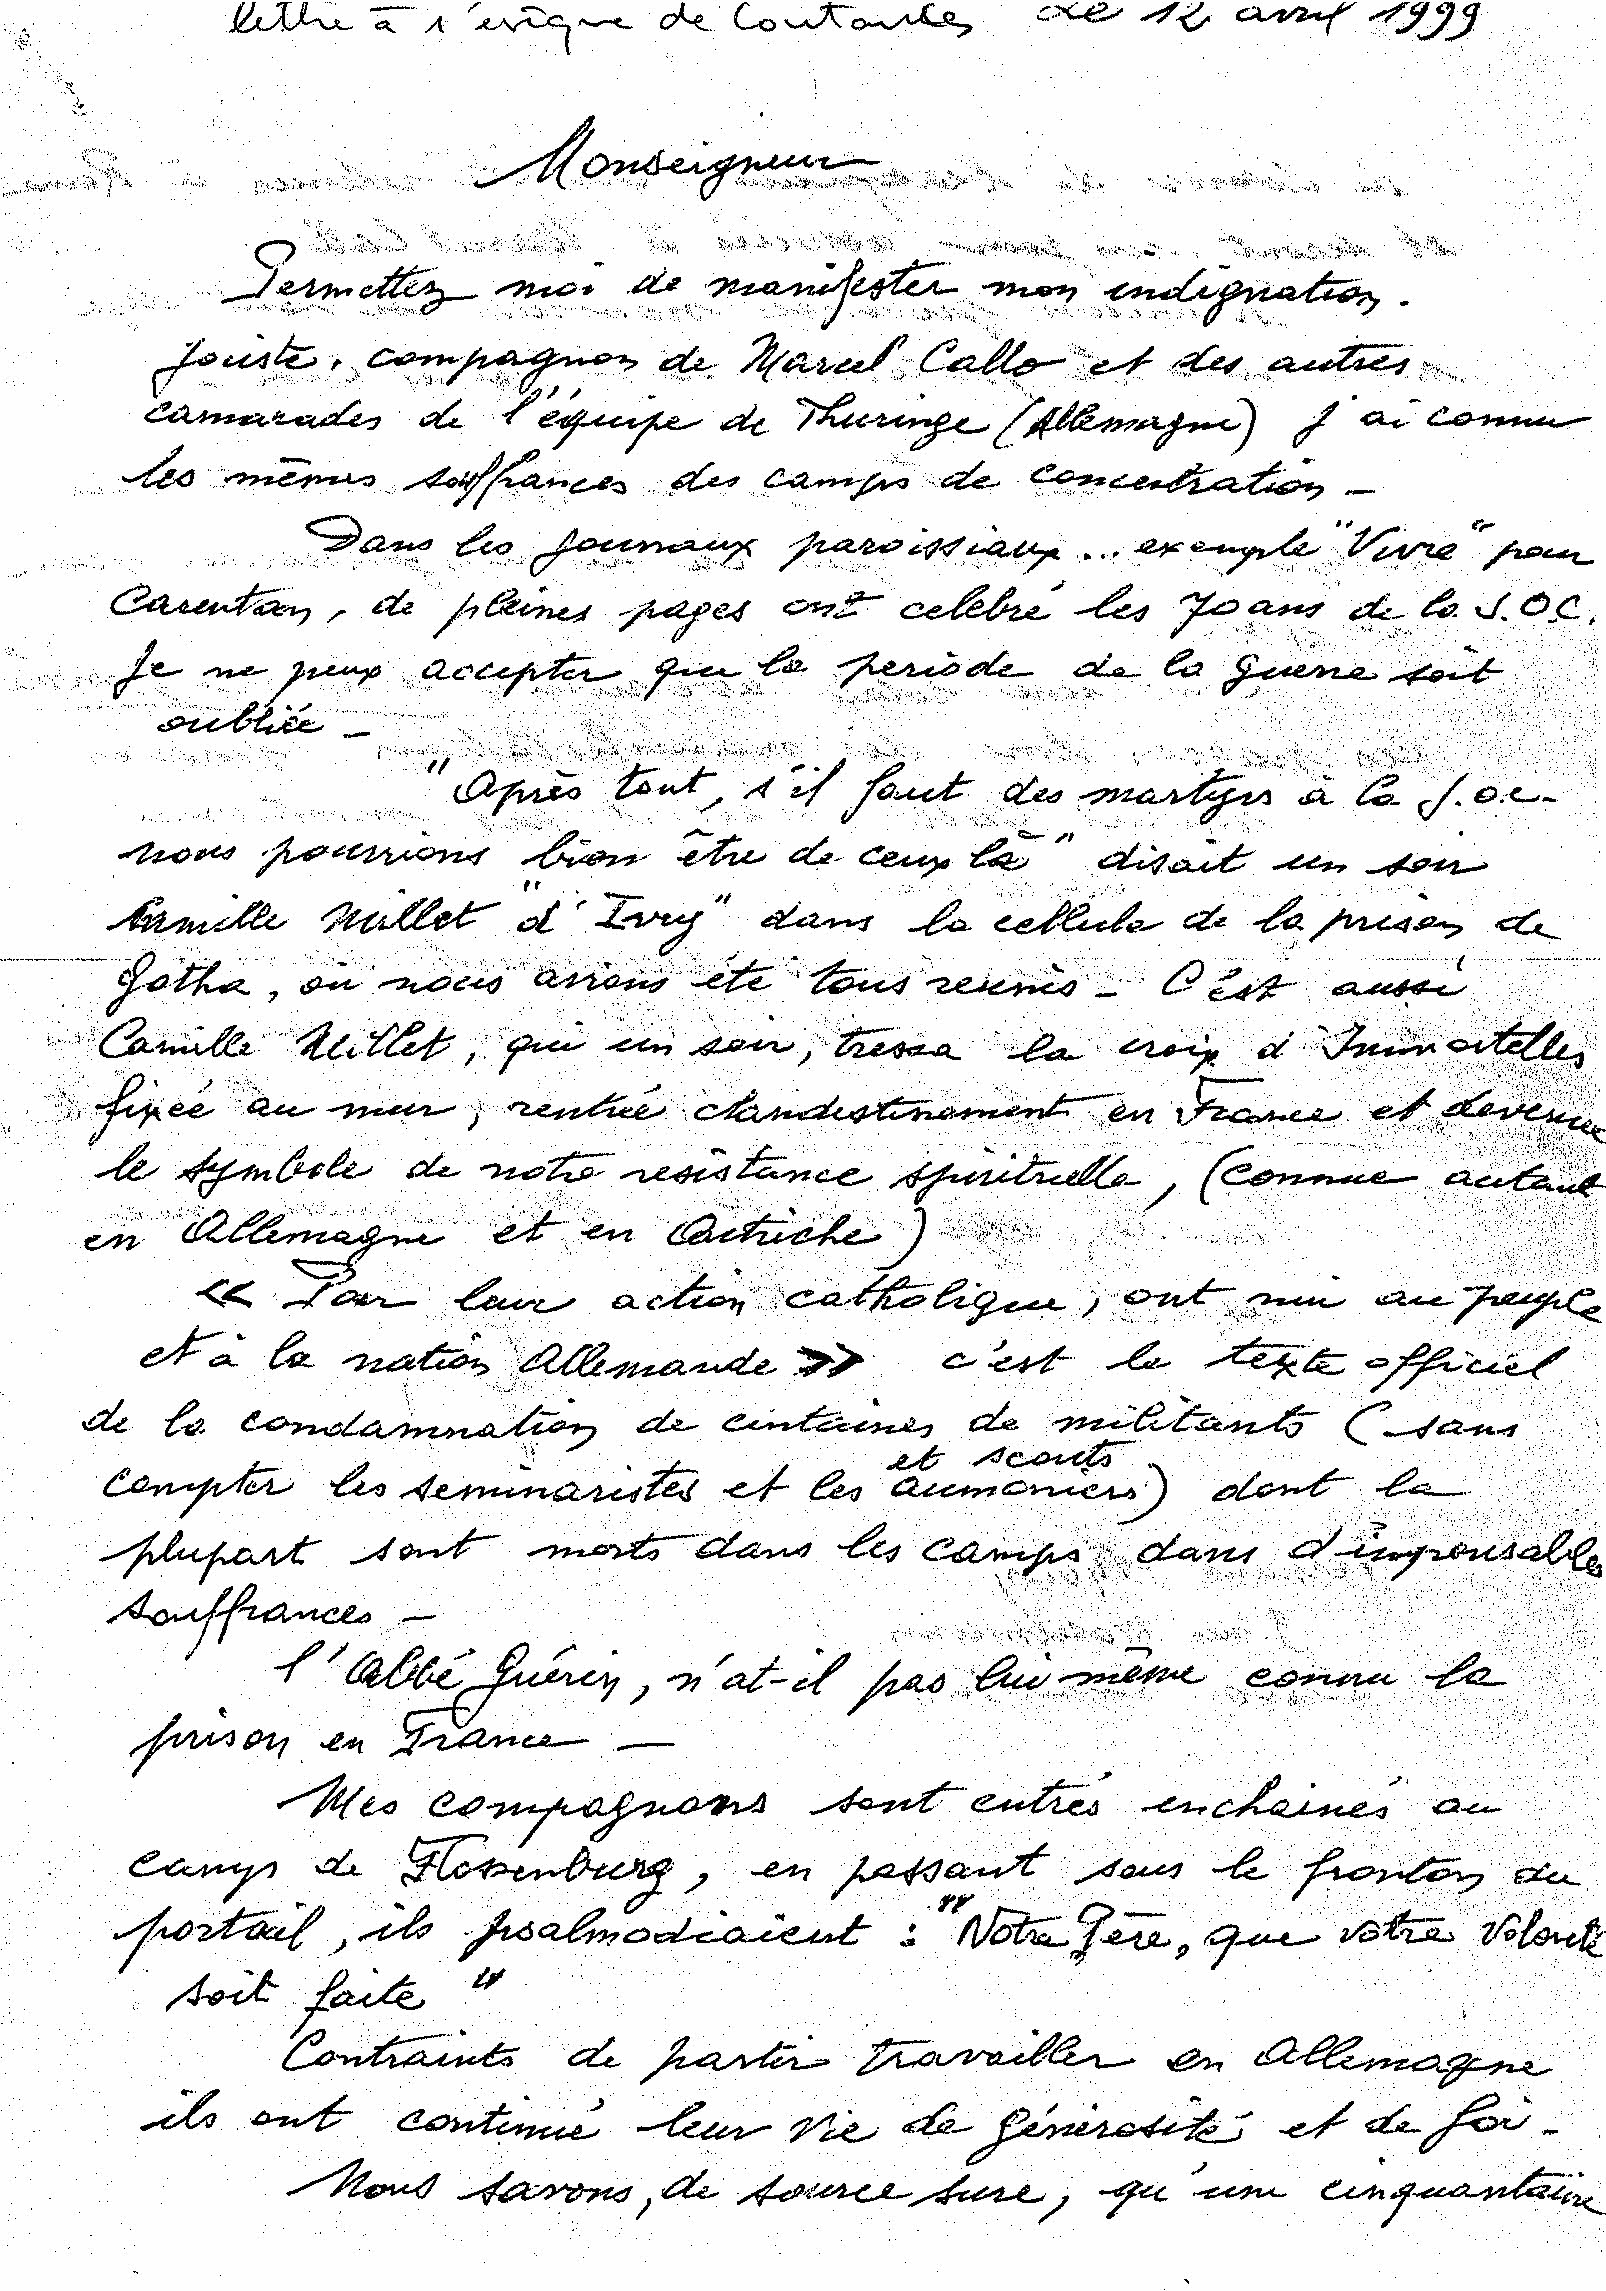 lettre à l'évêque de Coutances le 12 avril 1999
Monseigneur
Permettez moi de manifester mon indignation.
Jociste, compagnon de Marcel Callo et des autres
camarades de l'équipe de Thuringe (Allemagne) j'ai connu
les mêmes souffrances des camps de concentration -
Dans les journaux paroissiaux... exemple "Vivre" pour
Carentan, de pleines pages ont célébré les 70 ans de la J.O.C.
Je ne peux accepter que la periode de la guerre soit
oubliée -
"Après tout, s'il faut des martyrs à la J.O.C -
nous pourrions bien être de ceux là" disait un soir
Camille Millet "d'Ivry" dans la cellule de la prison de
Gotha, où nous avions été tous reunis - C'est aussi
Camille Millet, qui un soir, tressa la croix d'Immortelles
fixée au mur, rentrée clandestinement en France et devenue
le symbole de notre resistance spirituelle, (connue autant
en Allemagne et en Autriche)
« Par leur action catholique, ont nui au peuple
et à la nation Allemande » c'est le texte officiel
de la condamnation de centaines de militants (sans
et scouts
compter les seminaristes et les aumoniers) dont la
plupart sont morts dans les camps dans d'impensables
souffrances -
l'Abbé Guérin, n'at-il pas lui même connu la
prison en France -
Mes compagnons sont entrés enchainés au
camp de Flossenburg, en passant sous le fronton du
portail, ils psalmodiaient : "Notre Père, que votre Volonté
soit faite"
Contraints de partir travailler en Allemagne
ils ont continué leur vie de générosité et de foi -
Nous savons, de source sure, qu'une cinquantaine